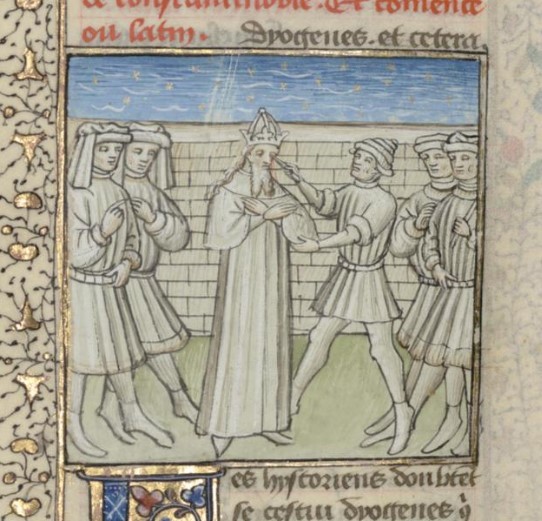 de constantinoble. Et comence
ou latin. Dyogenes. et cetera.
es hystoriens doubtet
se cestui dyogenes q̄